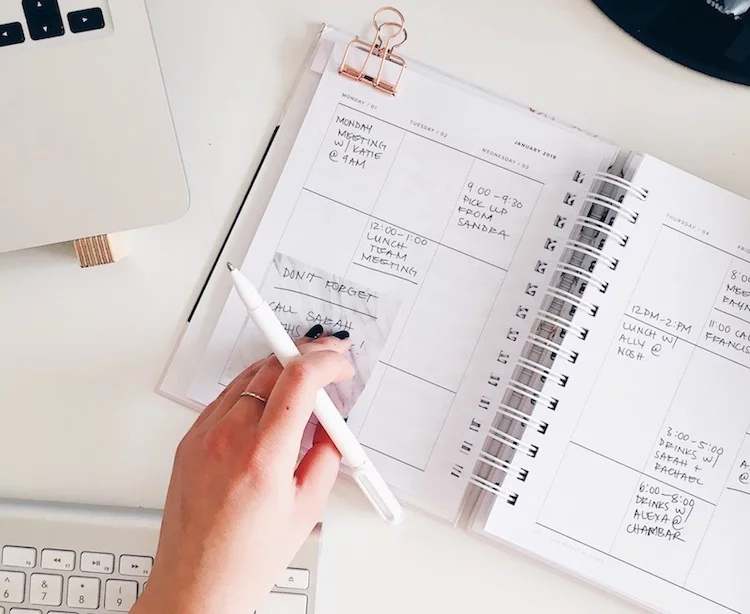 MONDAY / 01
MONDAY
MEETING
W/ KATIE
@ 9AM
TUESDAY / 02
12:00-1:00
LUNCH
TEAM
MEETING
JANUARY 2018
WEDNESDAY / 03
9:00-9:30
PICK UP
FROM
SANDRA
DON'T FORGET
CALL SARAH
THIS
!
THURSDAY / 04
12PM-2PM
LUNCH W/
ALLY @
NOSH
3:00-5:00
DRINKS W/
SARAH +
RACHAEL
6:00-8:00
DRINKS W/
ALEXA @
CHAMBAR
FRI
8:00
MEE
11:00 CAL
FRANCIS
A
@
6
&
7
*
8
(
9